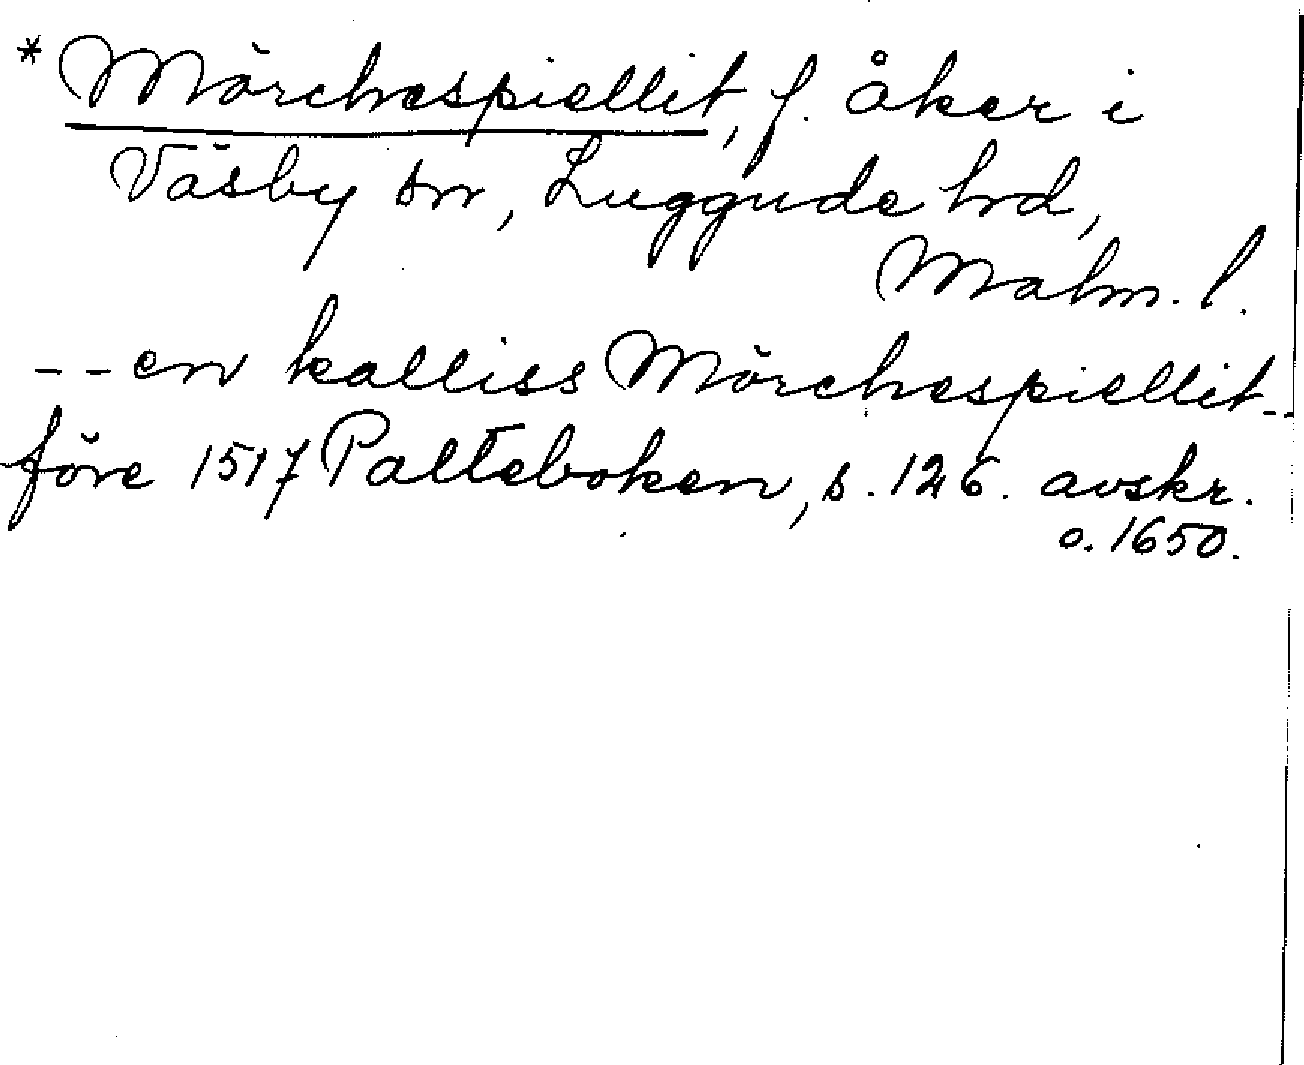 * Mörchespiellit, f. åker i
Väsby sn, Luggude hd,
Malm. l.
-- en kalliss Mörchespiellit --
före 1517 Palteboken, s. 126. avskr.
o. 1650.